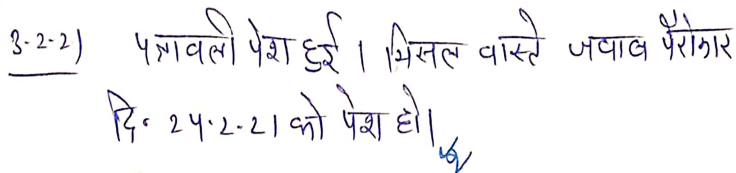 3-2-21 पत्रावली पेश हुई। मिसल वास्ते जवाब पैरोकार
दि. 24.2.21 को पेश हो।